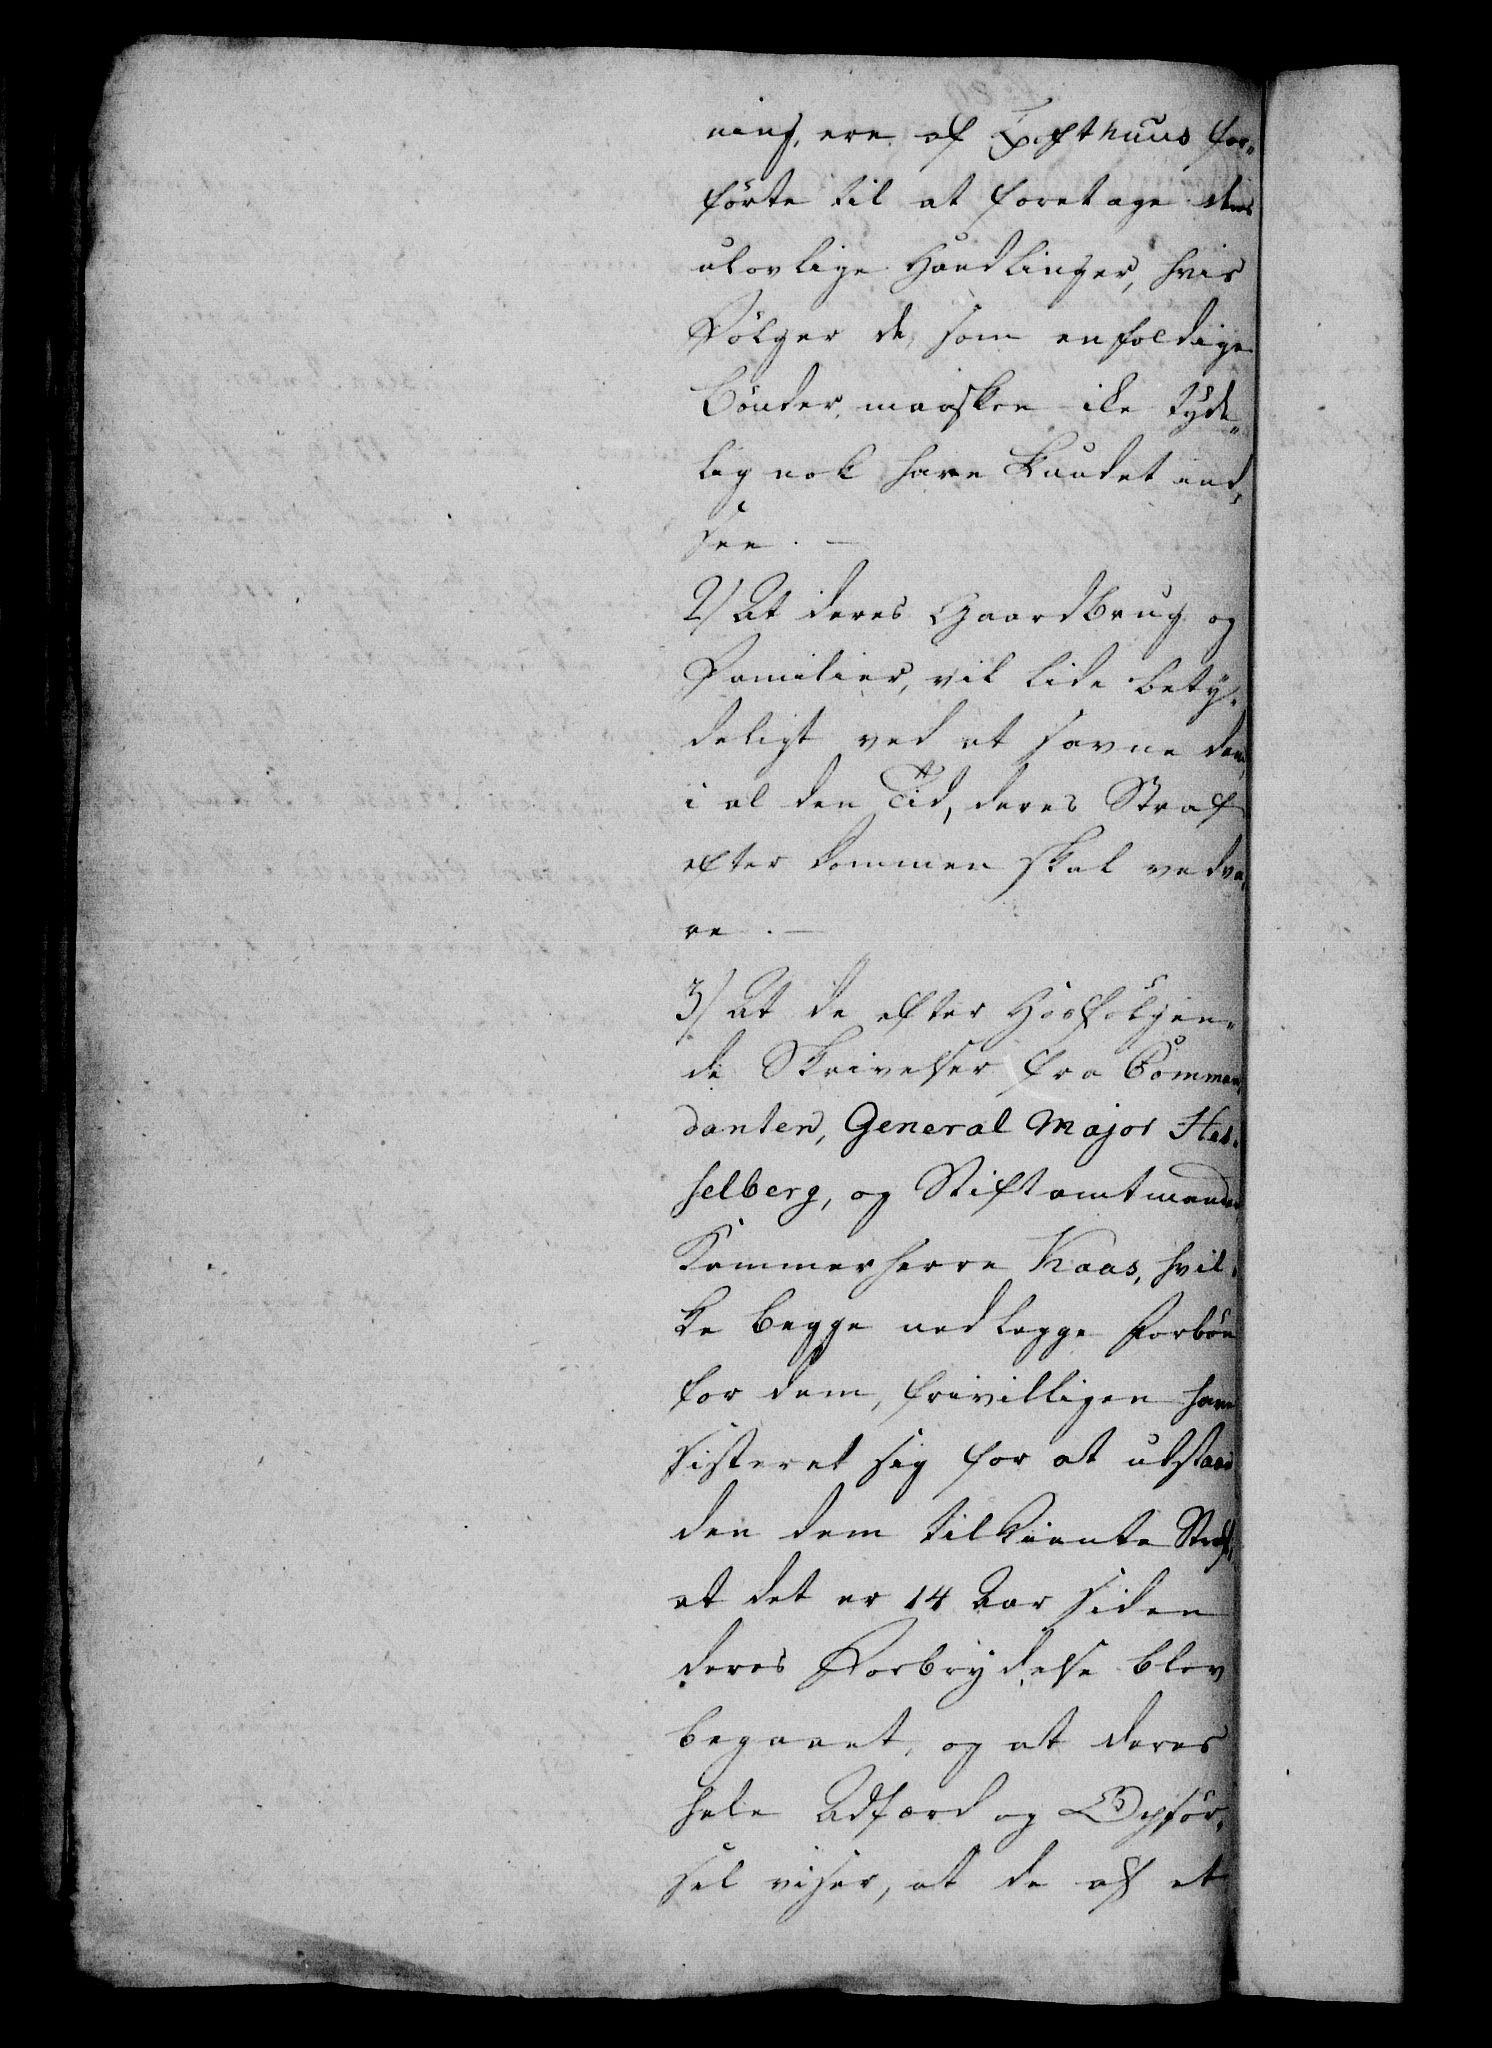 ning, ere af Lofthuus for-
førte til at foretage deres
ulovlige Handlinger, hvis
Følger de, som enfoldige
Bønder, maaskee ike tyde-
lig nok have kundet ind-
see. —
2) At deres Gaardbrug og
Familier, vil lide bety-
deligt ved at savne dem,
i al den Tid, deres Straf
efter Dommen skal vedva-
re. —
3) At de efter hosfølgen-
de Skrivelser fra Comman-
danten, General Major Hes-
selberg, og Stiftamtmanden
Kammerherre Kaas, hvil-
ke begge nedlegge Forbøn
for dem, frivilligen have
sisteret sig for at udstaae
den dem tilkiente Straf,
at det er 14 Aar siden
deres Forbrydelse blev
begaaet, og at deres
hele Adfærd og Opfør-
sel viser, at de af et